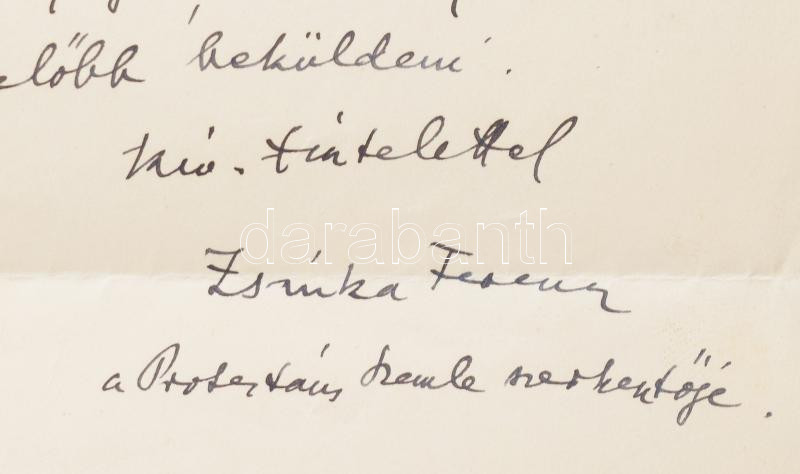 előbb beküldeni.
kiv. tisztelettel
darabanth
Zsinka Ferenc
a Protestáns Szemle szerkesztője.